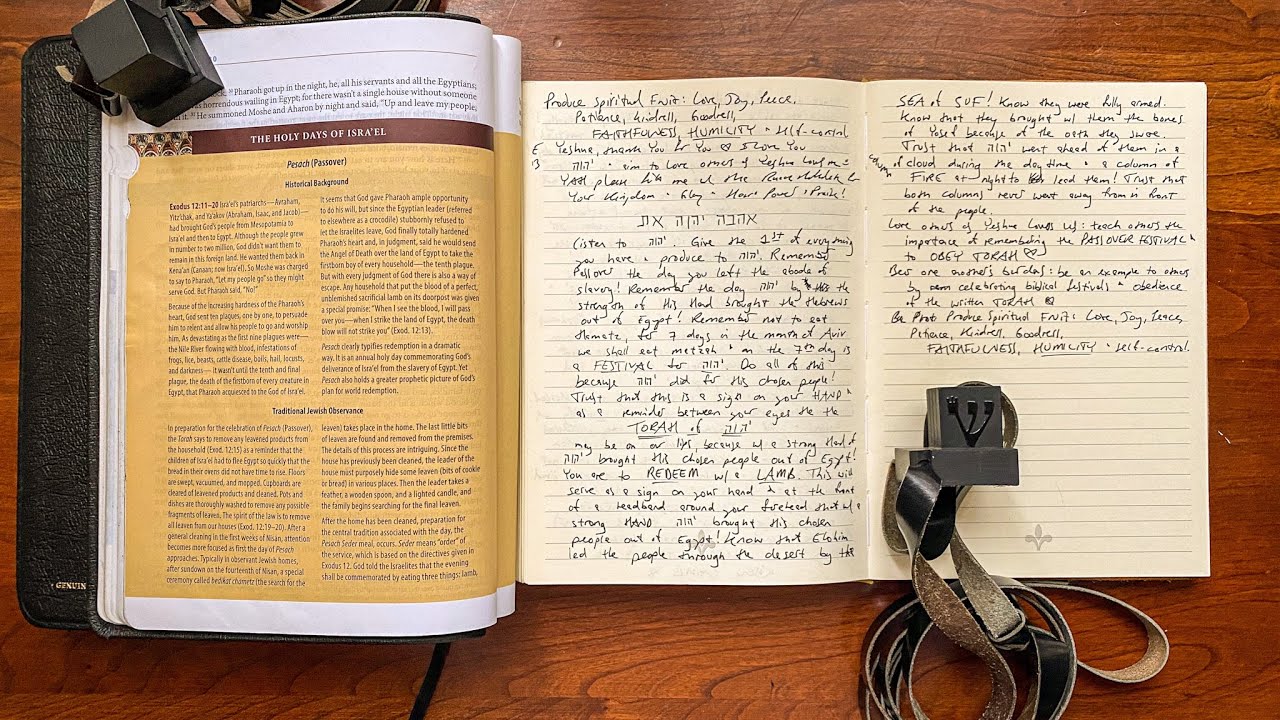 0
se. ³⁰ Pharaoh got up in the night, he, all his servants and all the Egyptians;
horrendous wailing in Egypt; for there wasn't a single house without someone
it. ³¹ He summoned Moshe and Aharon by night and said, "Up and leave my people,
THE HOLY DAYS OF ISRA'EL
Pesach (Passover)
Historical Background
Exodus 12:11–20 Isra'el's patriarchs—Avraham,
Yitz'chak, and Ya'akov (Abraham, Isaac, and Jacob)—
had brought God's people from Mesopotamia to
Isra'el and then to Egypt. Although the people grew
in number to two million, God didn't want them to
remain in this foreign land. He wanted them back in
Kena'an (Canaan; now Isra'el). So Moshe was charged
to say to Pharaoh, "Let my people go" so they might
serve God. But Pharaoh said, "No!"
Because of the increasing hardness of the Pharaoh's
heart, God sent ten plagues, one by one, to persuade
him to relent and allow his people to go and worship
him. As devastating as the first nine plagues were—
the Nile River flowing with blood, infestations of
frogs, lice, beasts, cattle disease, boils, hail, locusts,
and darkness— it wasn't until the tenth and final
plague, the death of the firstborn of every creature in
Egypt, that Pharaoh acquiesced to the God of Isra'el.
It seems that God gave Pharaoh ample opportunity
to do his will, but since the Egyptian leader (referred
to elsewhere as a crocodile) stubbornly refused to
let the Israelites leave, God finally totally hardened
Pharaoh's heart and, in judgment, said he would send
the Angel of Death over the land of Egypt to take the
firstborn boy of every household—the tenth plague.
But with every judgment of God there is also a way of
escape. Any household that put the blood of a perfect,
unblemished sacrificial lamb on its doorpost was given
a special promise: "When I see the blood, I will pass
over you—when I strike the land of Egypt, the death
blow will not strike you" (Exod. 12:13).
Pesach clearly typifies redemption in a dramatic
way. It is an annual holy day commemorating God's
deliverance of Isra'el from the slavery of Egypt. Yet
Pesach also holds a greater prophetic picture of God's
plan for world redemption.
Traditional Jewish Observance
In preparation for the celebration of Pesach (Passover),
the Torah says to remove any leavened products from
the household (Exod. 12:15) as a reminder that the
children of Isra'el had to flee Egypt so quickly that the
bread in their ovens did not have time to rise. Floors
are swept, vacuumed, and mopped. Cupboards are
cleared of leavened products and cleaned. Pots and
dishes are thoroughly washed to remove any possible
fragments of leaven. The spirit of the law is to remove
all leaven from our houses (Exod. 12:19–20). After a
general cleaning in the first weeks of Nisan, attention
becomes more focused as first the day of Pesach
approaches. Typically in observant Jewish homes,
after sundown on the fourteenth of Nisan, a special
ceremony called bedikat chametz (the search for the
leaven) takes place in the home. The last little bits
of leaven are found and removed from the premises.
The details of this process are intriguing. Since the
house has previously been cleaned, the leader of the
house must purposely hide some leaven (bits of cookie
or bread) in various places. Then the leader takes a
feather, a wooden spoon, and a lighted candle, and
the family begins searching for the final leaven.
After the home has been cleaned, preparation for
the central tradition associated with the day, the
Pesach Seder meal, occurs. Seder means "order" of
the service, which is based on the directives given in
Exodus 12. God told the Israelites that the evening
shall be commemorated by eating three things: lamb,
GENUIN
Produce Spiritual Fruit: Love, Joy, Peace,
Patience, Kindness, Goodness,
FAITHFULNESS, HUMILITY + Self-control
E Yeshua, thank You for You ♡ I love You
B יהוה + aim to love others as Yeshua loves me
YAH please fill me w/ the Ruach
Your Kingdom + Glory + Honor Power + Praise!
אהבה יהוה את
Listen to יהוה. Give the 1st of everything
you have + produce to יהוה. Remember
Passover the day you left the abode of
slavery! Remember the day יהוה by the
strength of His Hand brought the Hebrews
out of Egypt! Remember not to eat
chametz, for 7 days in the month of Aviv
we shall eat matzah + on the 7th day is
a FESTIVAL for יהוה. Do all of this
because יהוה did for His chosen people!
Trust that this is a sign on your HAND +
as a reminder between your eyes the the
TORAH of יהוה
may be on our lips because w/ a strong Hand of
יהוה brought His chosen people out of Egypt!
You are to REDEEM w/ a LAMB. This will
serve as a sign on your hand + at the front
of a headband around your forehead that w/ a
strong HAND יהוה brought His chosen
people out of Egypt! Know that Elohim
led the people through the desert by the
SEA of SUF! Know they were fully armed.
Know that they brought w/ them the bones
of Yosef because of the oath they swore.
Trust that יהוה went ahead of them in a
column of cloud during the day time + a column of
FIRE at night to lead them! Trust that
both columns never went away from in front
of the people.
Love others as Yeshua loves us: teach others the
importance of remembering the PASSOVER FESTIVAL +
to OBEY TORAH ♡
Bear one another's burdens: be an example to others
by celebrating biblical festivals + obedience
of the written TORAH
Produce Spiritual Fruit: Love, Joy, Peace,
Patience, Kindness, Goodness,
FAITHFULNESS, HUMILITY + Self-control.
ש